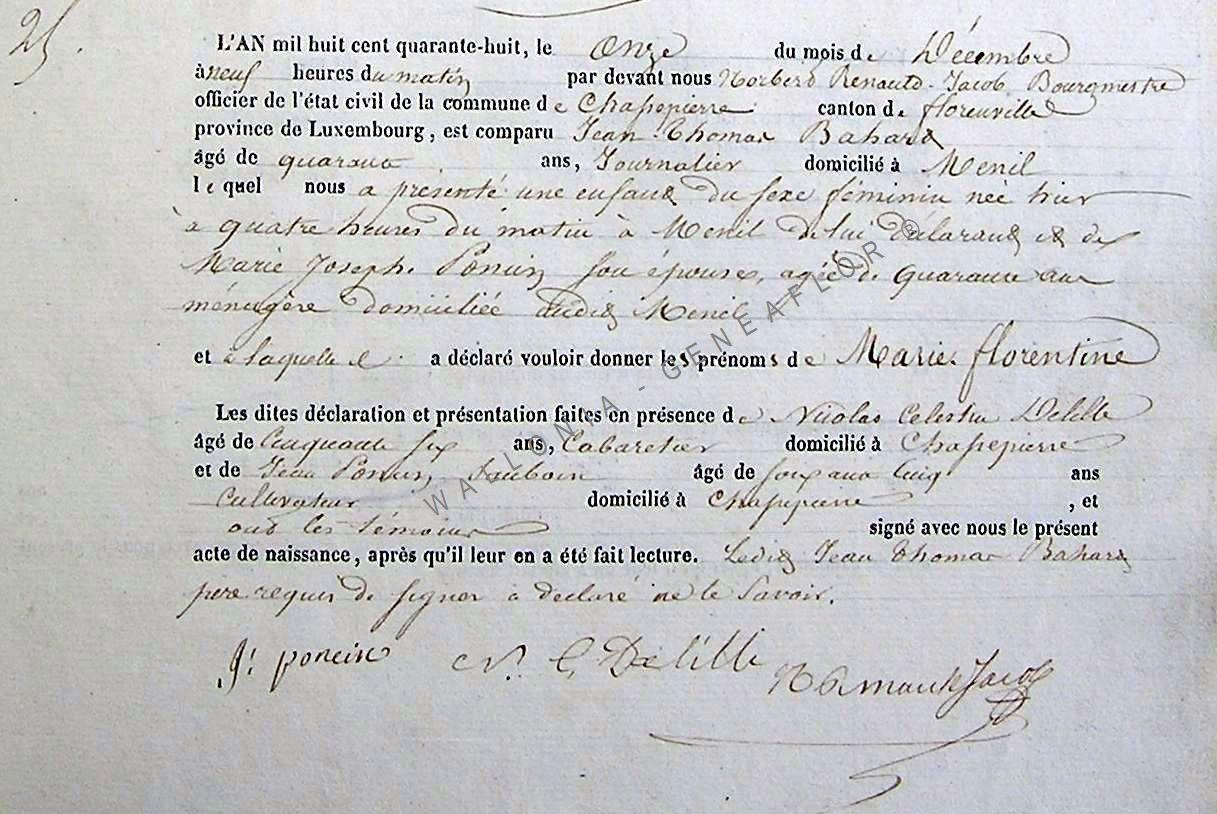 25.
L'AN mil huit cent quarante-huit, le onze du mois de Décembre
à neuf heures du matin par devant nous Norbert Renauld-Jacob Bourgmestre
officier de l'état civil de la commune de Chassepierre canton de florenville
province de Luxembourg, est comparu Jean Thomas Bahard
âgé de quarante ans, Journalier domicilié à Menil
lequel nous a présenté une enfant du sexe féminin née hier
à quatre heures du matin à Menil de lui déclarant et de
Marie Joseph Poncin son épouse, agée de quarante ans
ménagère domiciliée audit Menil
et à laquelle il a déclaré vouloir donner les prénoms de Marie florentine
Les dites déclaration et présentation faites en présence de Nicolas Celestin Delille
âgé de Cinquante six ans, Cabaretier domicilié à Chassepierre
et de Jean Poncin, âgé de soixante cinq ans
Cultivateur domicilié à Chassepierre, et
ont les témoins signé avec nous le présent
acte de naissance, après qu'il leur en a été fait lecture. Ledit Jean Thomas Bahard
père requis de signer a declaré ne le Savoir.
J: poncin N. C. Delille N Renauld Jacob
WALLONIA - GENEAFLOR ®